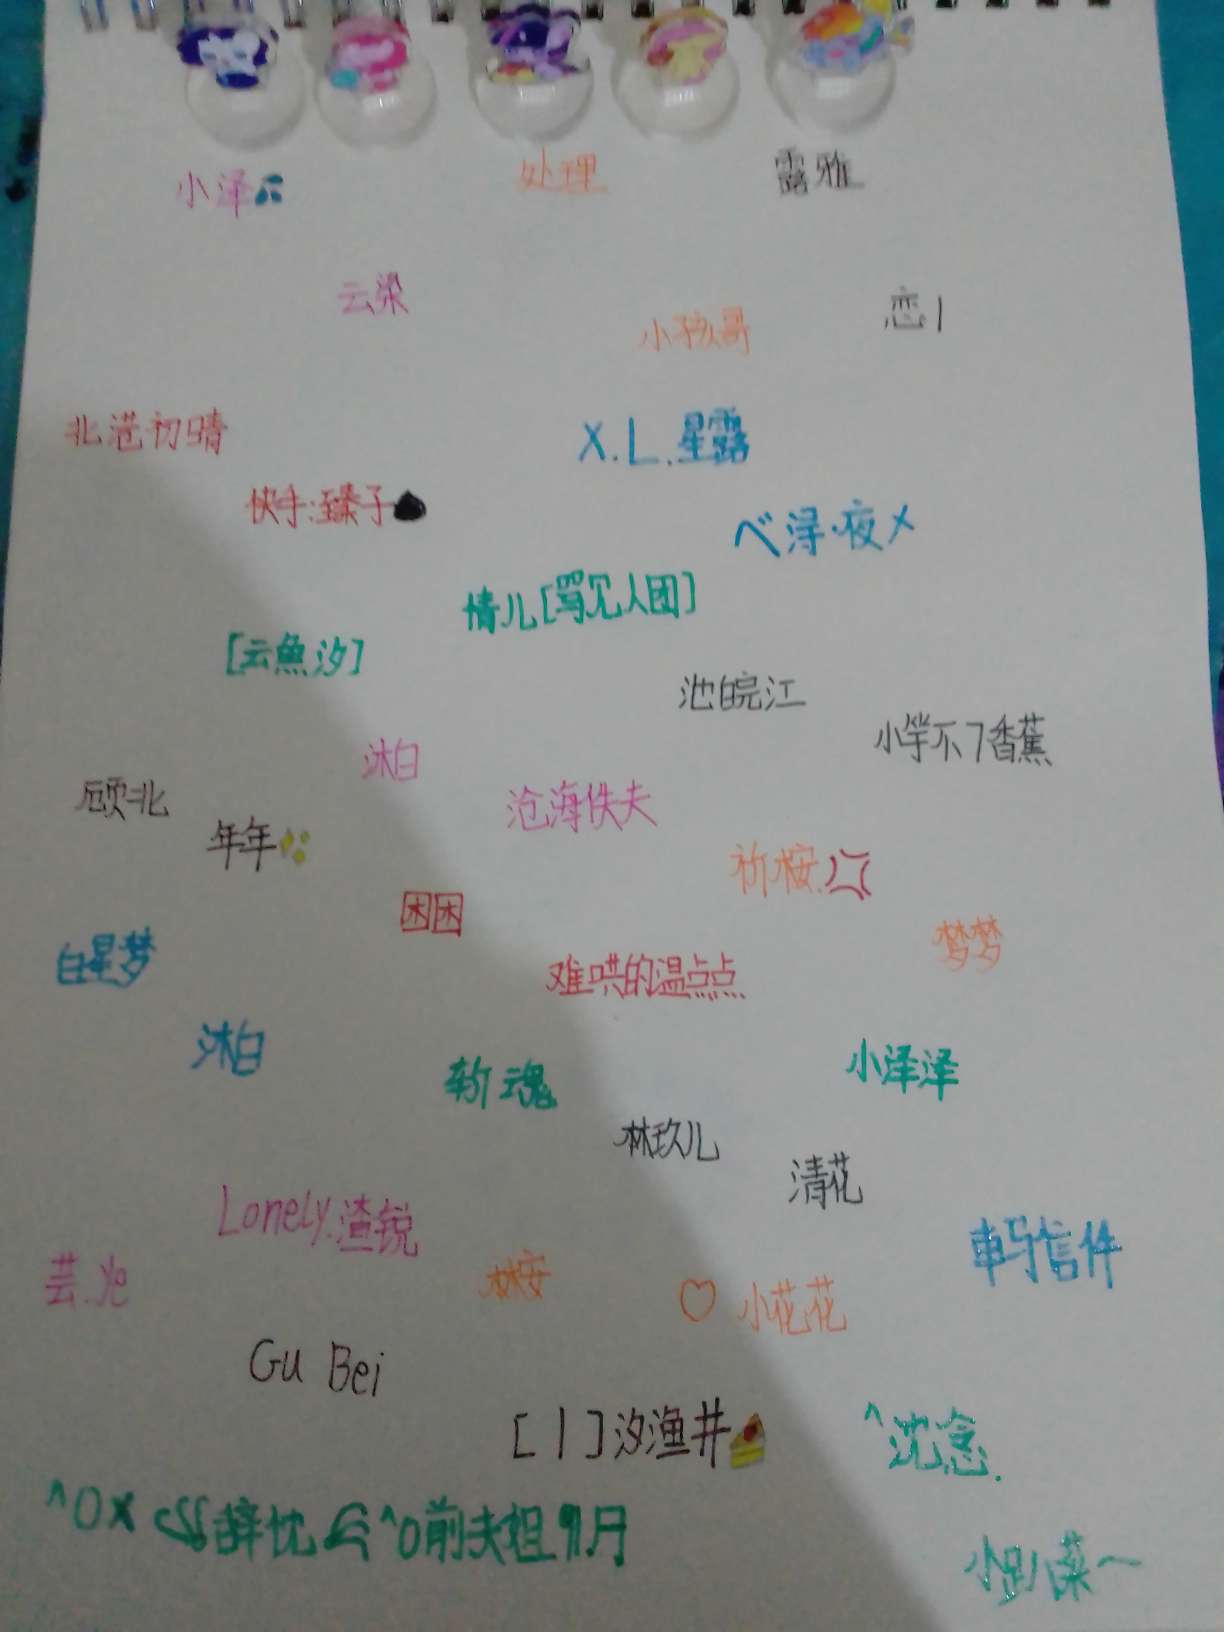 小泽
处理
露雅
云梁
小孩哥
恋1
北港初晴
X.L.星露
快手:臻子
ベ浔·夜メ
情儿[骂见人团]
[云魚汐]
池皖江
小竽不了香蕉
沐白
顾北
沧海佚夫
年年
祈桉.
困困
白星梦
梦梦
难哄的温点点
沐白
斩魂
小泽泽
林玖儿
清花
Lonely.渣锐
车马信件
芸.
林安
♡ 小花花
Gu Bei
[1]汐渔井
^沈念.
^0x 辞忱 ^0前夫姐9月
小趴菜～